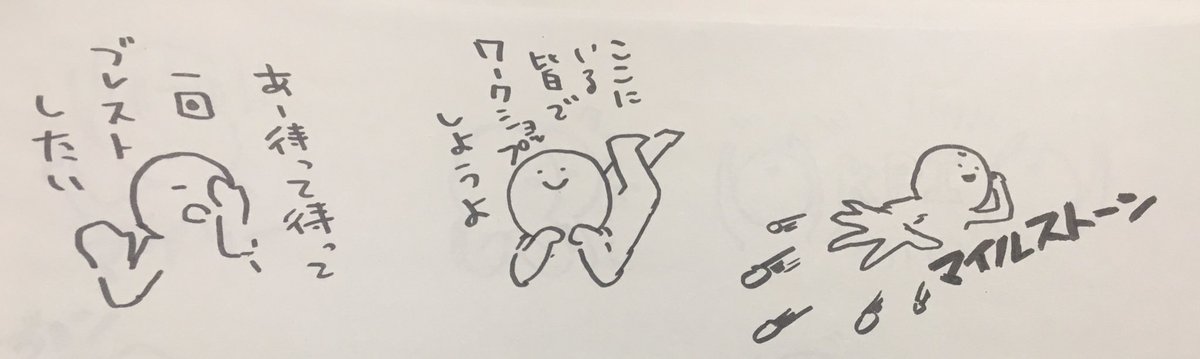 あー待って待って
一回
ブレスト
したい
ここに
いる
皆で
ワークショップ
しようよ
マイルストーン